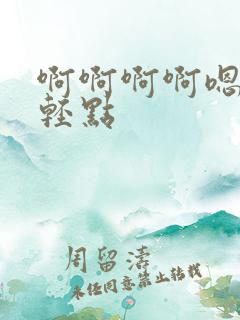 啊啊啊啊嗯
轻點
周留涛
未经同意禁止转载